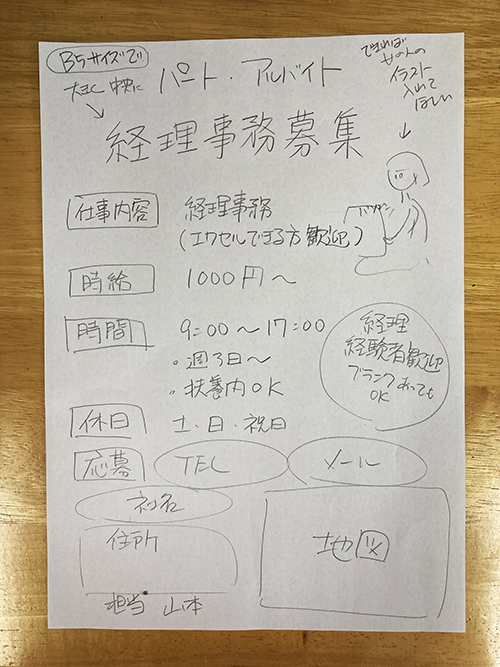 B5サイズで
大きく中央に
パート・アルバイト
できれば
女の人の
イラスト
入れて
ほしい
経理事務募集
仕事内容 経理事務
(エクセルできる方歓迎)
パソコン
時給 1000円〜
時間 9:00〜17:00
・週3日〜
・扶養内OK
経理
経験者歓迎
ブランクあっても
OK
休日 土・日・祝日
応募 TEL メール
社名
住所
地図
担当 山本